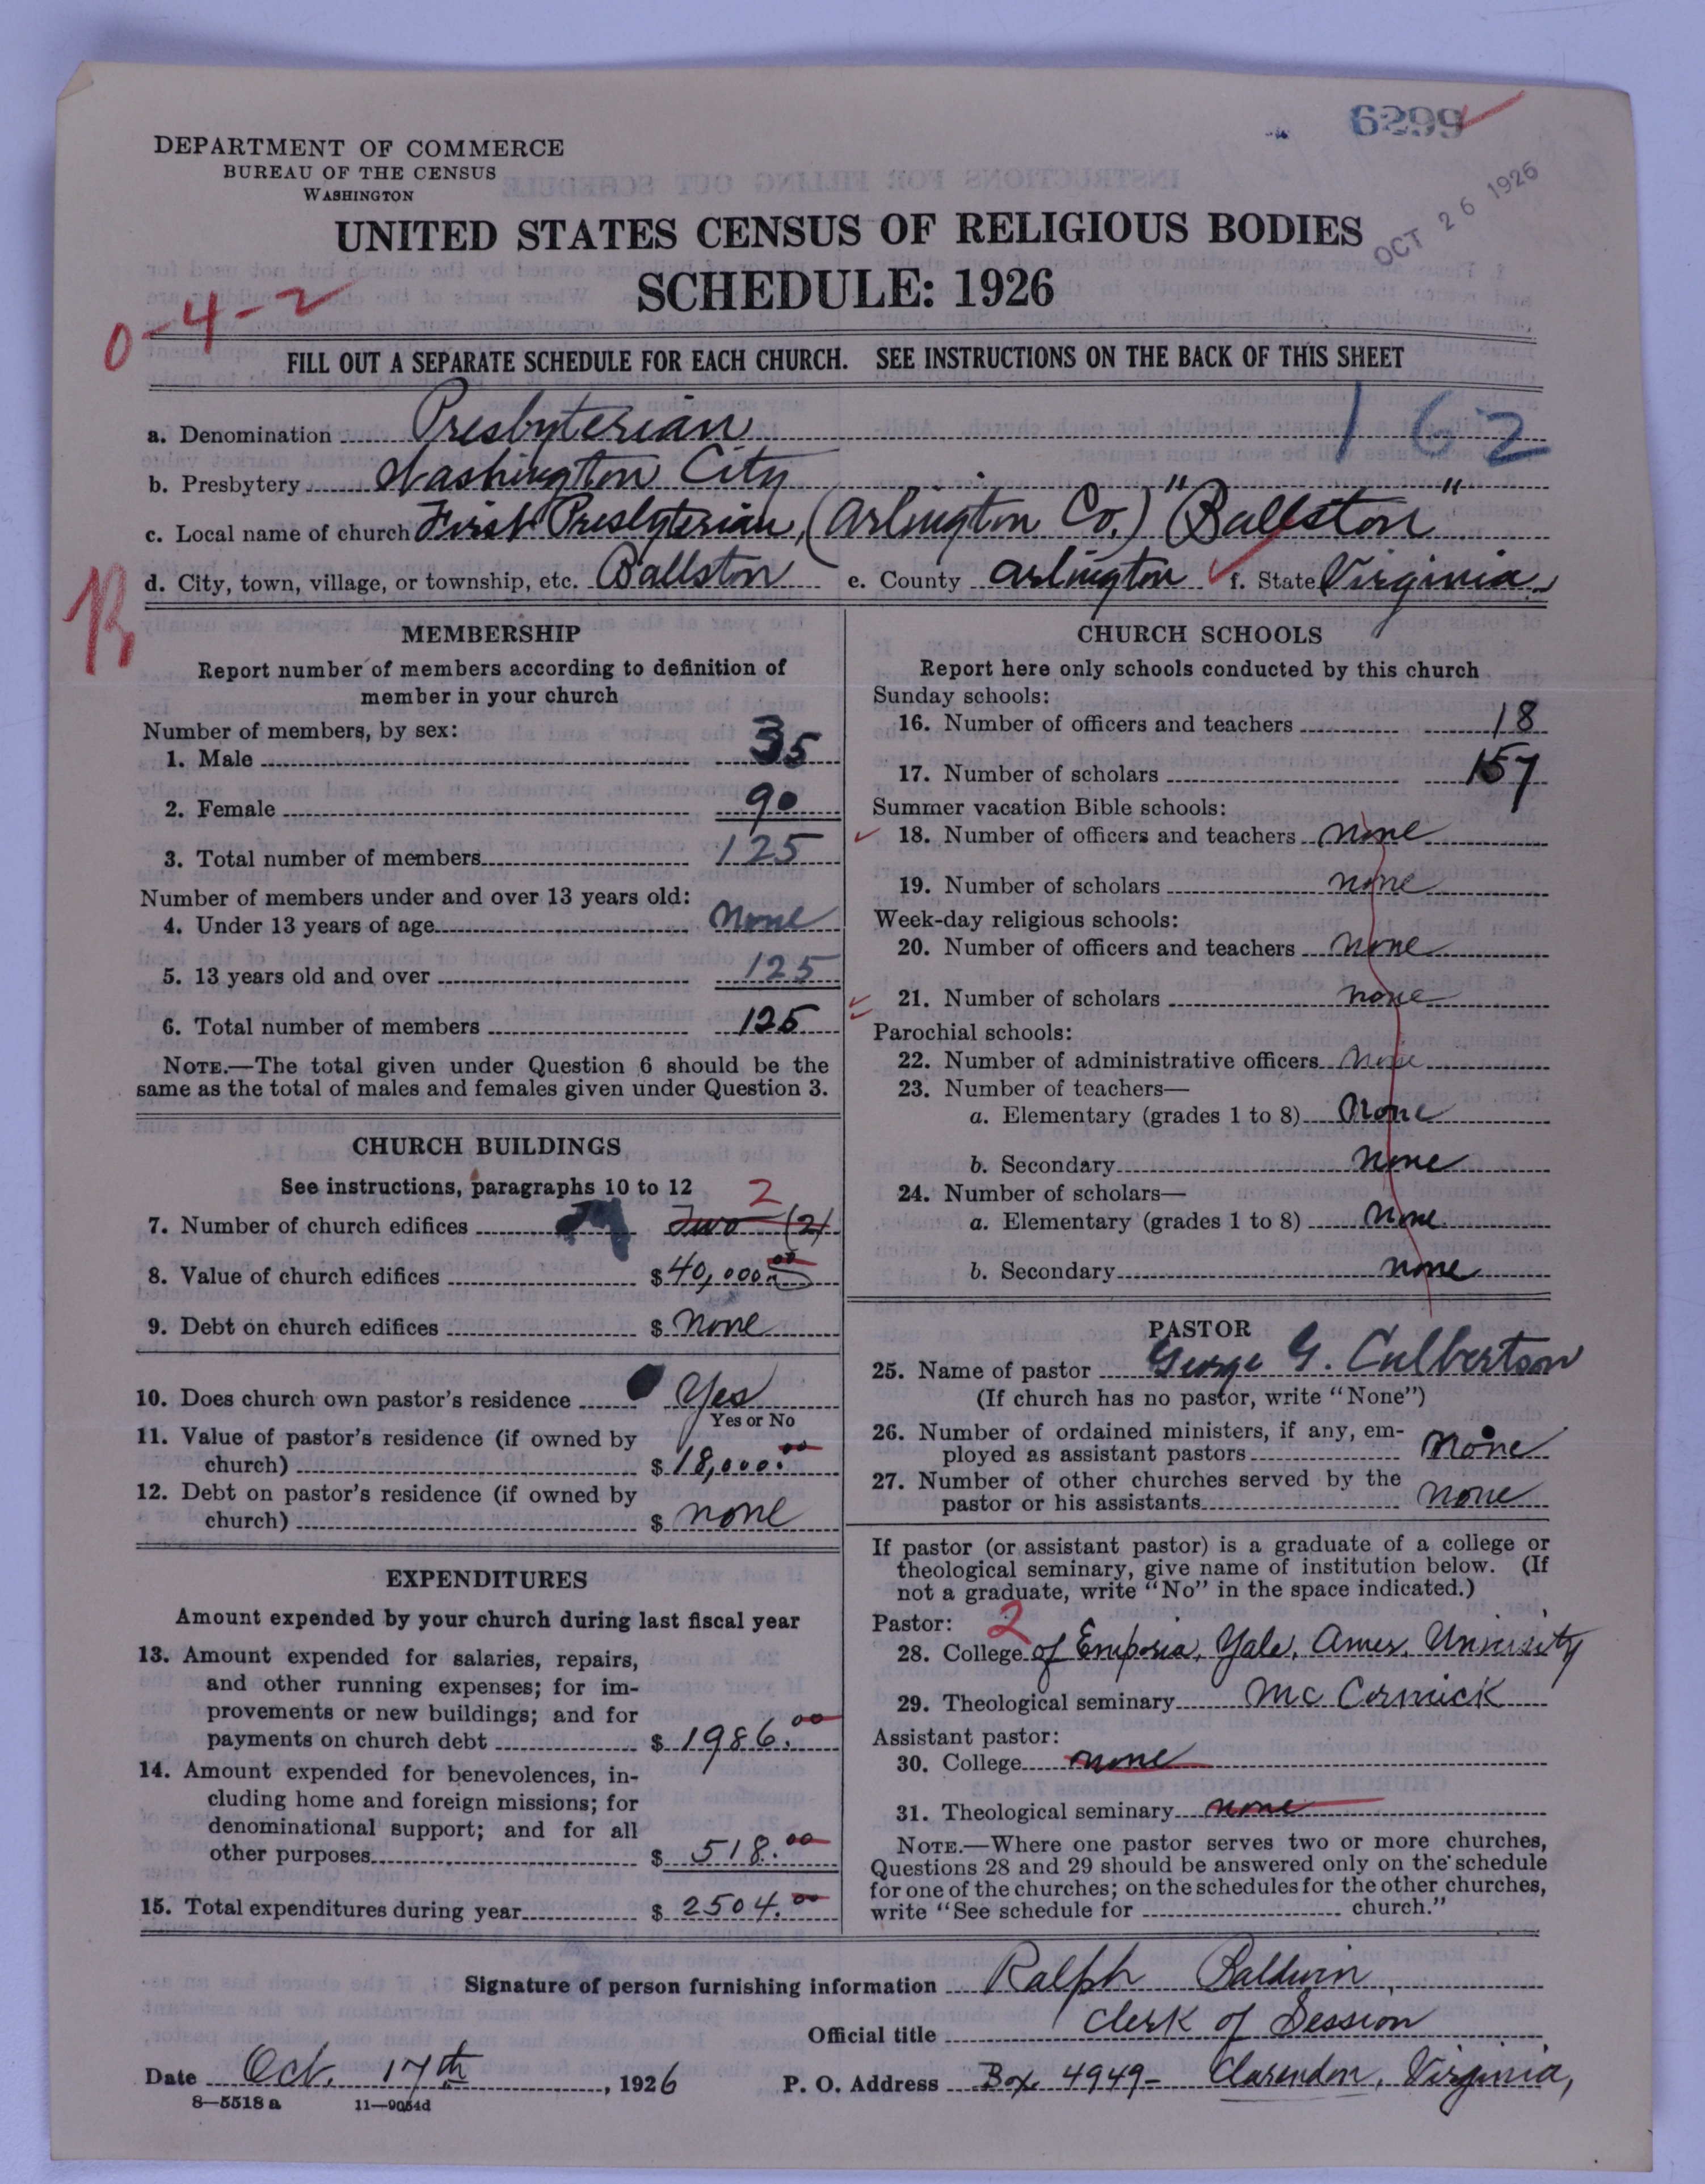 6299
OCT 26 1926
DEPARTMENT OF COMMERCE
BUREAU OF THE CENSUS
WASHINGTON
UNITED STATES CENSUS OF RELIGIOUS BODIES
SCHEDULE: 1926
0-4-2
FILL OUT A SEPARATE SCHEDULE FOR EACH CHURCH. SEE INSTRUCTIONS ON THE BACK OF THIS SHEET
162
a. Denomination Presbyterian
b. Presbytery Washington City
c. Local name of church First Presbyterian, (Arlington Co.) "Ballston"
d. City, town, village, or township, etc. Ballston e. County Arlington f. State Virginia
MEMBERSHIP
Report number of members according to definition of
member in your church
Number of members, by sex:
1. Male 35
2. Female 90
3. Total number of members 125
Number of members under and over 13 years old:
4. Under 13 years of age None
5. 13 years old and over 125
6. Total number of members 125
NOTE.—The total given under Question 6 should be the
same as the total of males and females given under Question 3.
CHURCH BUILDINGS
See instructions, paragraphs 10 to 12
2
7. Number of church edifices Two (2)
8. Value of church edifices $ 40,000.00
9. Debt on church edifices $ none
10. Does church own pastor's residence Yes
Yes or No
11. Value of pastor's residence (if owned by
church) $ 18,000.00
12. Debt on pastor's residence (if owned by
church) $ none
EXPENDITURES
Amount expended by your church during last fiscal year
13. Amount expended for salaries, repairs,
and other running expenses; for im-
provements or new buildings; and for
payments on church debt $ 1986.00
14. Amount expended for benevolences, in-
cluding home and foreign missions; for
denominational support; and for all
other purposes $ 518.00
15. Total expenditures during year $ 2504.00
CHURCH SCHOOLS
Report here only schools conducted by this church
Sunday schools:
16. Number of officers and teachers 18
17. Number of scholars 157
Summer vacation Bible schools:
18. Number of officers and teachers none
19. Number of scholars none
Week-day religious schools:
20. Number of officers and teachers none
21. Number of scholars none
Parochial schools:
22. Number of administrative officers none
23. Number of teachers—
a. Elementary (grades 1 to 8) none
b. Secondary none
24. Number of scholars—
a. Elementary (grades 1 to 8) none
b. Secondary none
PASTOR
25. Name of pastor George G. Culbertson
(If church has no pastor, write "None")
26. Number of ordained ministers, if any, em-
ployed as assistant pastors none
27. Number of other churches served by the
pastor or his assistants none
If pastor (or assistant pastor) is a graduate of a college or
theological seminary, give name of institution below. (If
not a graduate, write "No" in the space indicated.)
Pastor: 2
28. College of Emporia, Yale, Amer. University
29. Theological seminary McCormick
Assistant pastor:
30. College none
31. Theological seminary none
NOTE.—Where one pastor serves two or more churches,
Questions 28 and 29 should be answered only on the schedule
for one of the churches; on the schedules for the other churches,
write "See schedule for church."
Signature of person furnishing information Ralph Baldwin
Official title Clerk of Session
Date Oct. 17th, 1926 P. O. Address Box 4949- Clarendon, Virginia,
8—5518 a 11—9054d